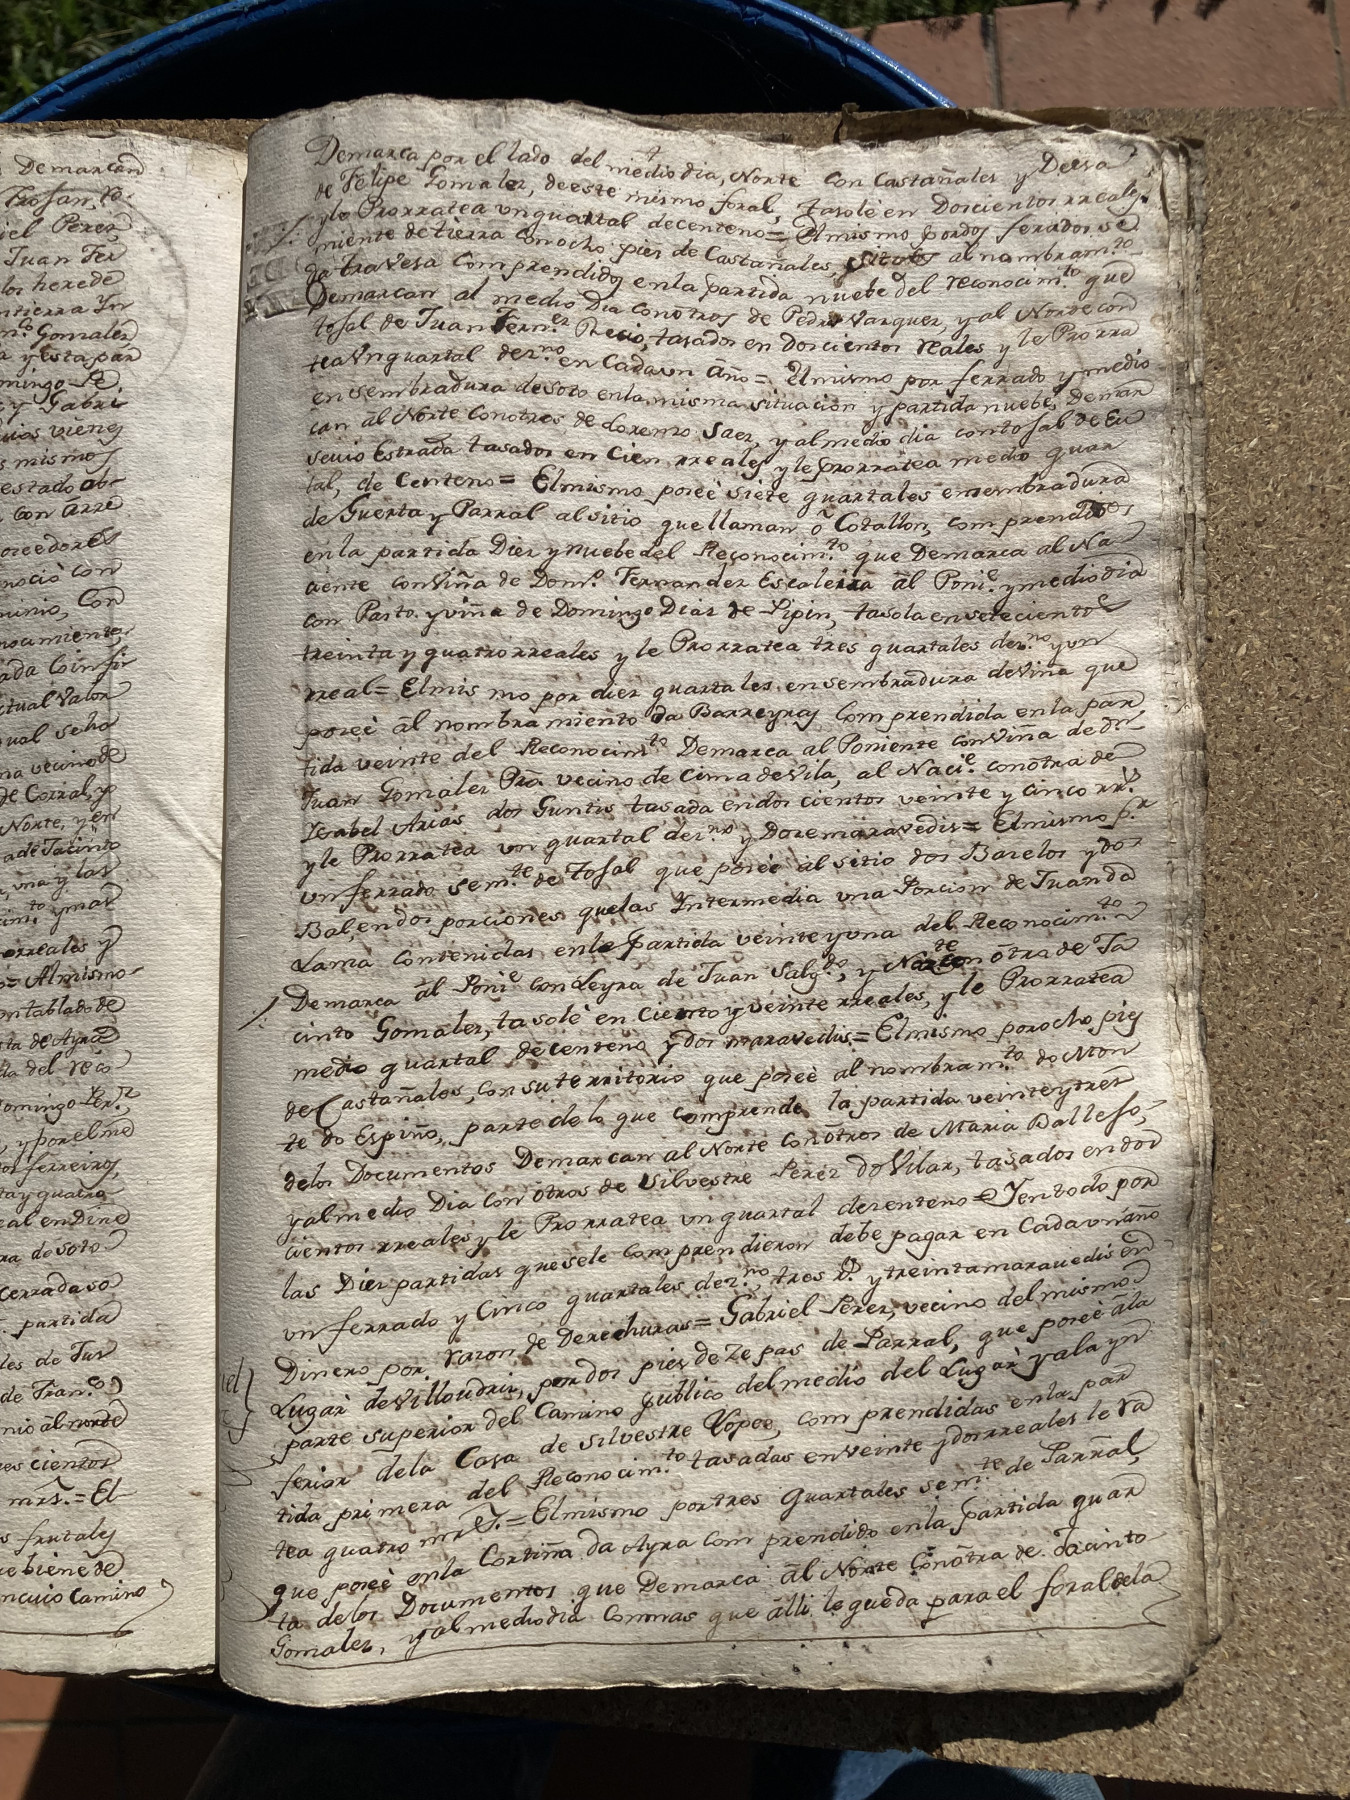 Demarcan
Trosan, Yo-
iel Perez
Juan Fer
los herede
ntierra Yn
Gomalez
a y Esta par
mingo Pe,
y Gabri
uios vienes
s mismos
estado ab-
con arre
oseedores
noció con
munio, Con
nocimiento
ada Coinsir
ctual Valor
qual seha
na vecino de
de Corral, y
Norte, y en
a de Jacinto
una y las
cim.to y mas
orreales y
= Almismo
ontablado de
sta de Ayra
da del reco
omingo Per.z
, y por el me
os ferreiros,
ta y quatro
eal en Dine
ra de soto
cerrada so
partida
les de Jua
de Fran.co
nio al norte
es cientos
mrs. = El
s frutales
ue biene de
ncuio Camino
Demarca por el lado del medio dia, Norte con Castañales y Deesa
de Felipe Gomalez, de este mismo foral, tasolé en Doscientos rreales
y lo Prorratea un quartal de centeno = El mismo por dos ferados se
miente de tierra con ocho pies de Castañales, sitos al nombram.to
da travesa Comprendidos en la partida nuebe del reconocim.to que
Demarcan al medio Dia con otros de Pedro Vazquez, y al Norte con
tosal de Juan Fern.ez Recio, tasados en doscientos reales y le Prorra
tea Un quartal de z.no en Cada un Año = El mismo por ferrado y medio
en sembradura de soto en la misma situacion y partida nuebe, demar
can al Norte Con otros de Lorenzo Saez, y al medio dia con tosal de Eu
sevio Estrada tasados en Cien rreales y le prorratea medio quar
tal, de Centeno = El mismo poseé siete quartales ensembradura
de Guerta y Parral al sitio que llaman o Cotallon, comprendidos
en la partida Diez y nuebe del Reconocim.to que Demarca al Na
ciente con Viña de Dom.o Fernandez Escaleira al Poni.e y medio dia
con Parto. y viña de Domingo Diaz de Pipin, tasola en setecientos
treinta y quatro rreales y le Prorratea tres quartales de z.no y un
rreal = El mismo por diez quartales en sembradura de Viña que
poseé al nombramiento da Barreyras Comprendida en la par
tida veinte del Reconocim.to Demarca al Poniente con Viña de dn.
Juan Gomalez Pro. vecino de Cima de Vila, al Naci.e con otra de
Ysabel Arias dos Guntis tasada en dos cientos veinte y cinco rr.s
y le Prorratea un quartal de z.no y Doze maravedis = El mismo p.r
un ferrado sem.te de tosal que poseé al sitio dos Barelos y do
Bal, en dos porciones que las Yntermedia una Porcion de Juan da
Lama Contenidas en la Partida veinte y una del Reconocim.to
Demarca al Poni.e con Leyra de Juan Salg.do, y Norte con otra de Ja
cinto Gomalez, tasolé en Ciento y veinte rreales, y le Prorratea
medio quartal de centeno y dos maravedis = El mismo por ocho pies
de Castañalos, con su territorio que poseé al nombram.to do Mon
te do Espiño, parte de lo que Comprende la partida veinte y tres
de los Documentos Demarcan al Norte con otros de Maria Ballejo,
y al medio Dia con otros de Silvestre Perez do Vilar, tasados en dos
cientos rreales y le Prorratea un quartal de zenteno = Y en todo por
las Diez partidas que sele Comprendieron debe pagar en Cada un año
un ferrado y Cinco quartales de z.no, tres r.s y treinta maravedis en
Dinero por razon de Derechuras = Gabriel Perez, vecino del mismo
Lugar de Villoudriz, por dos pies de Zepas de Parral, que poseé ála
parte superior del Camino publico del medio del Lugar y ala yn
ferior de la Casa de Silvestre Lopez, Comprendidas en la par
tida primera del Reconocim.to tasadas en veinte y dos rreales le ra
tea quatro mrs. = El mismo por tres quartales sem.te de Parral,
que poseé en la Cortiña da Ayra Comprendido en la partida quar
ta de los Documentos que Demarca al Norte Con otra de Jacinto
Gomalez, y al medio dia Con mas que alli le queda para el foral de la